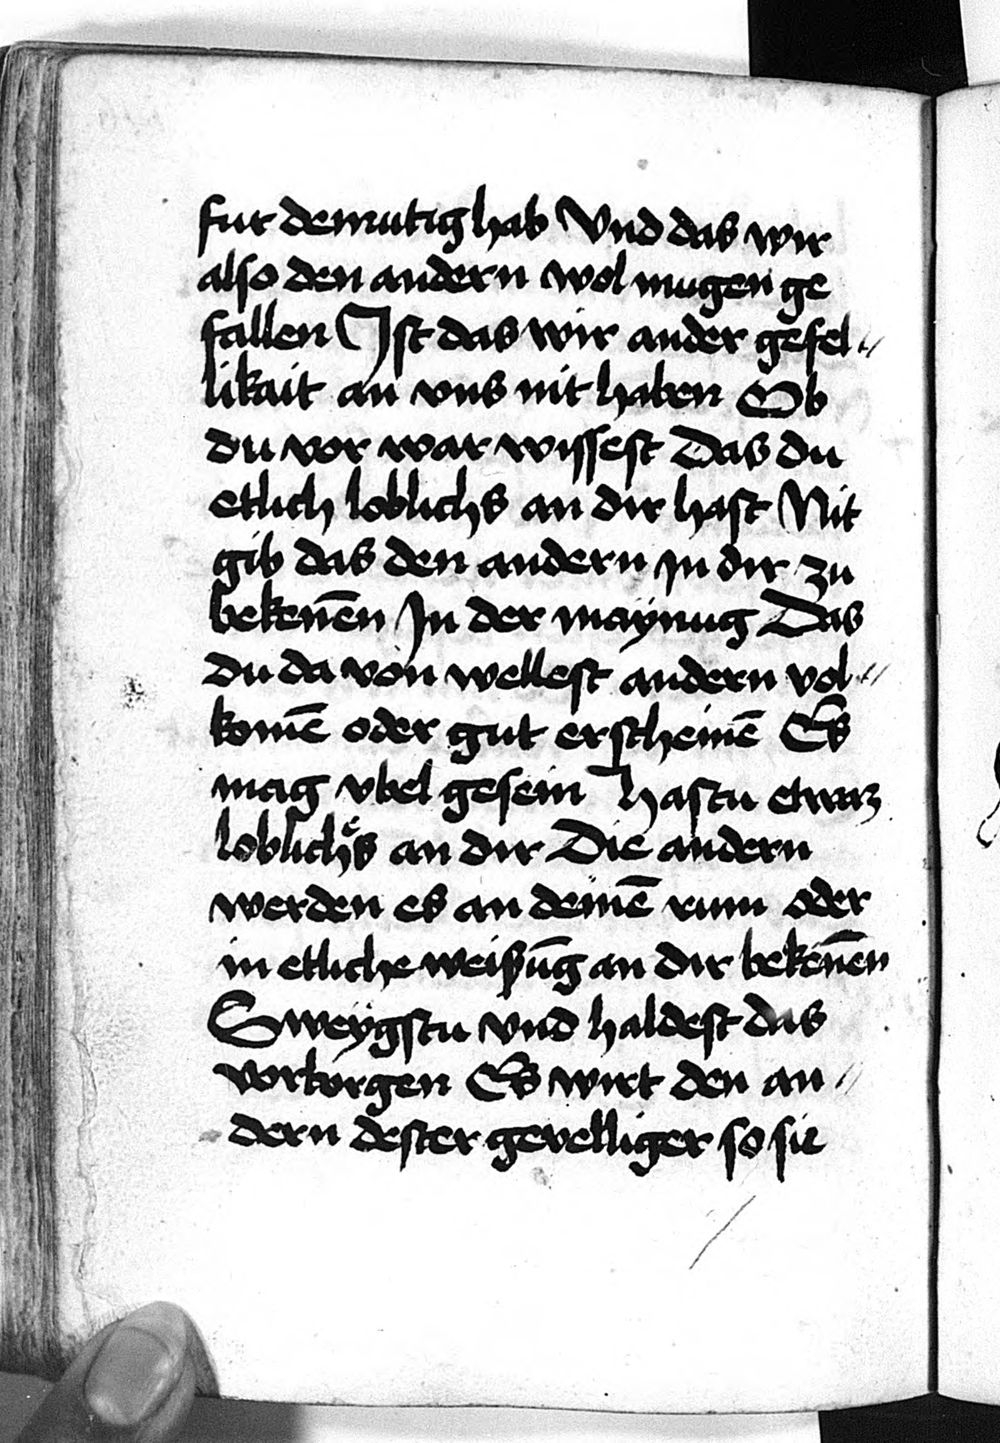 fur demutig hab Vnd das wir
also den andern wol mugen ge
fallen Ist das wir ander gefel〃
likait an vns nit haben Ob
du vor war wissest Das du
etlich loblichs an dir hast Nit
gib das den andern in dir zu
bekenēn In der maÿnug Das
du da von wellest andern vol〃
komē oder gut erscheinē Es
mag vbel gesein Hastu etwaz
loblichs an dir Die andern
werden es an deinē rum oder
in etliche weißūg an dir bekēnēn
Sweÿgstu vnd haldest das
vorborgen Es wirt den an〃
dern dester gevelliger so sie